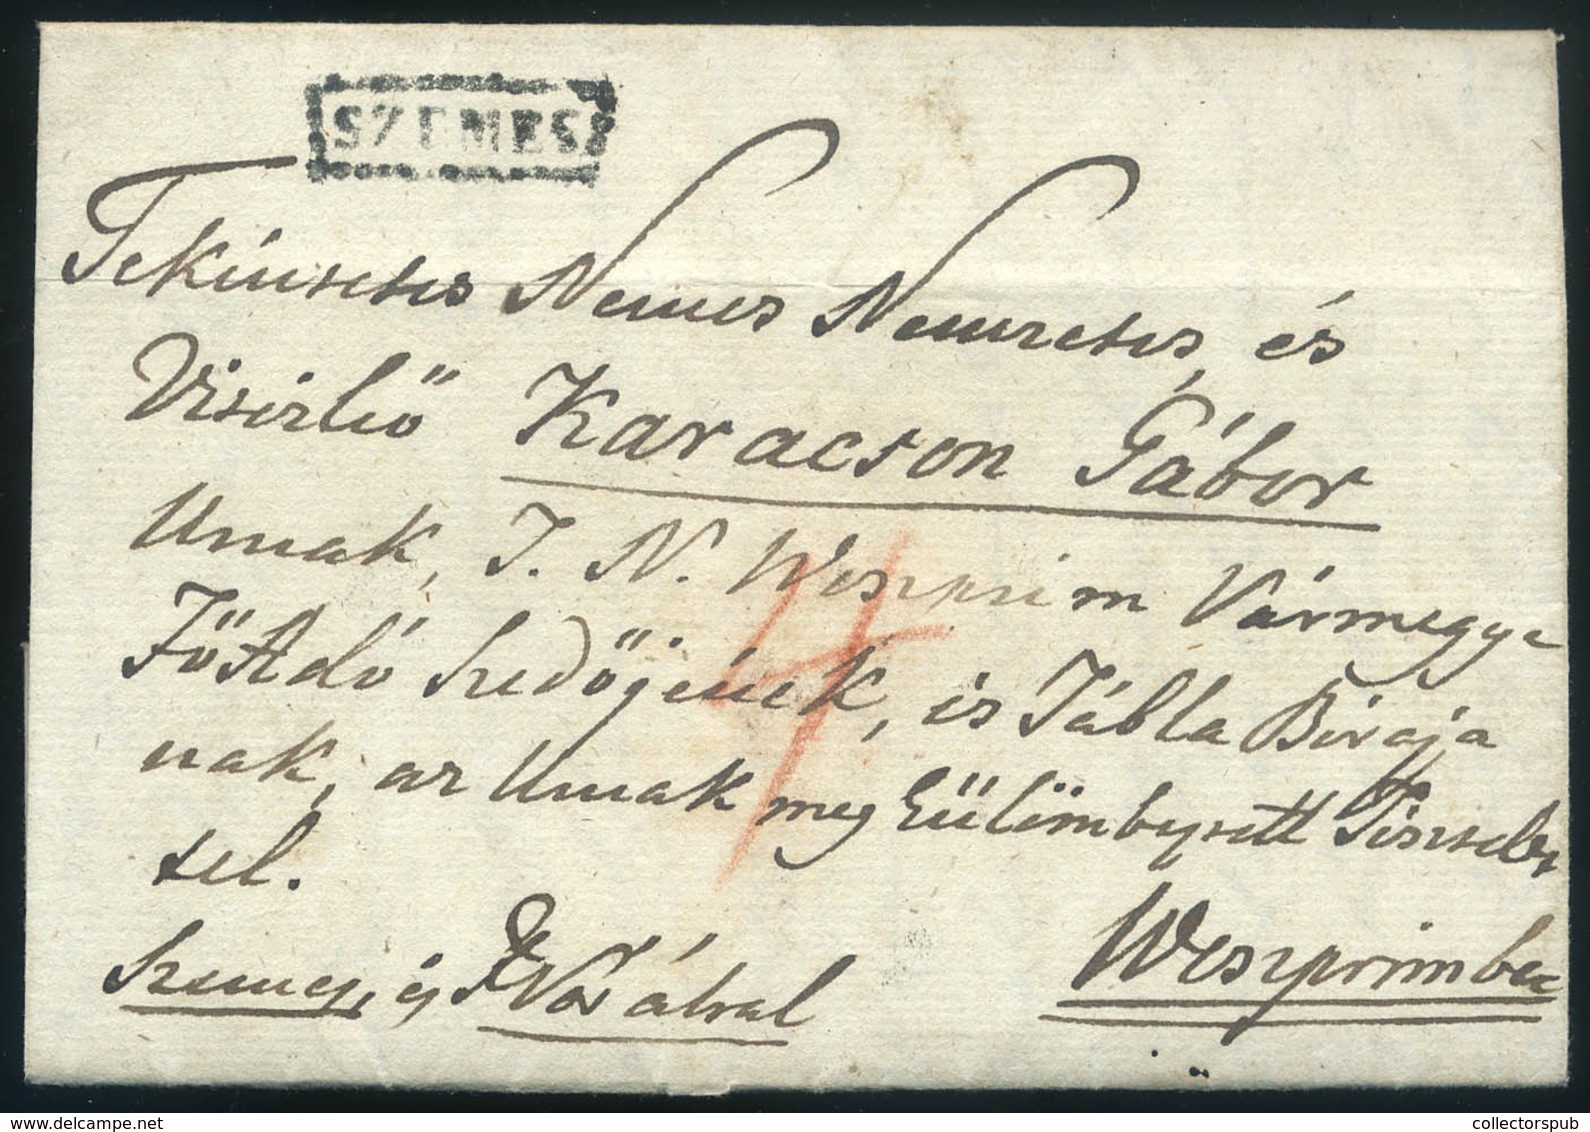 SZEMES
Tekéntetes Nemes Nemzetes, és
Visérlő Karacson Gábor
Urnak, T. N. Weszprim Vármegye
Fő Adó Szedőjének, és Tábla Birája
nak, az Urnak meg Külömbsztett Tisztelet
tel.
4
Szemes, és Várátval
Weszprimben
collectorspub